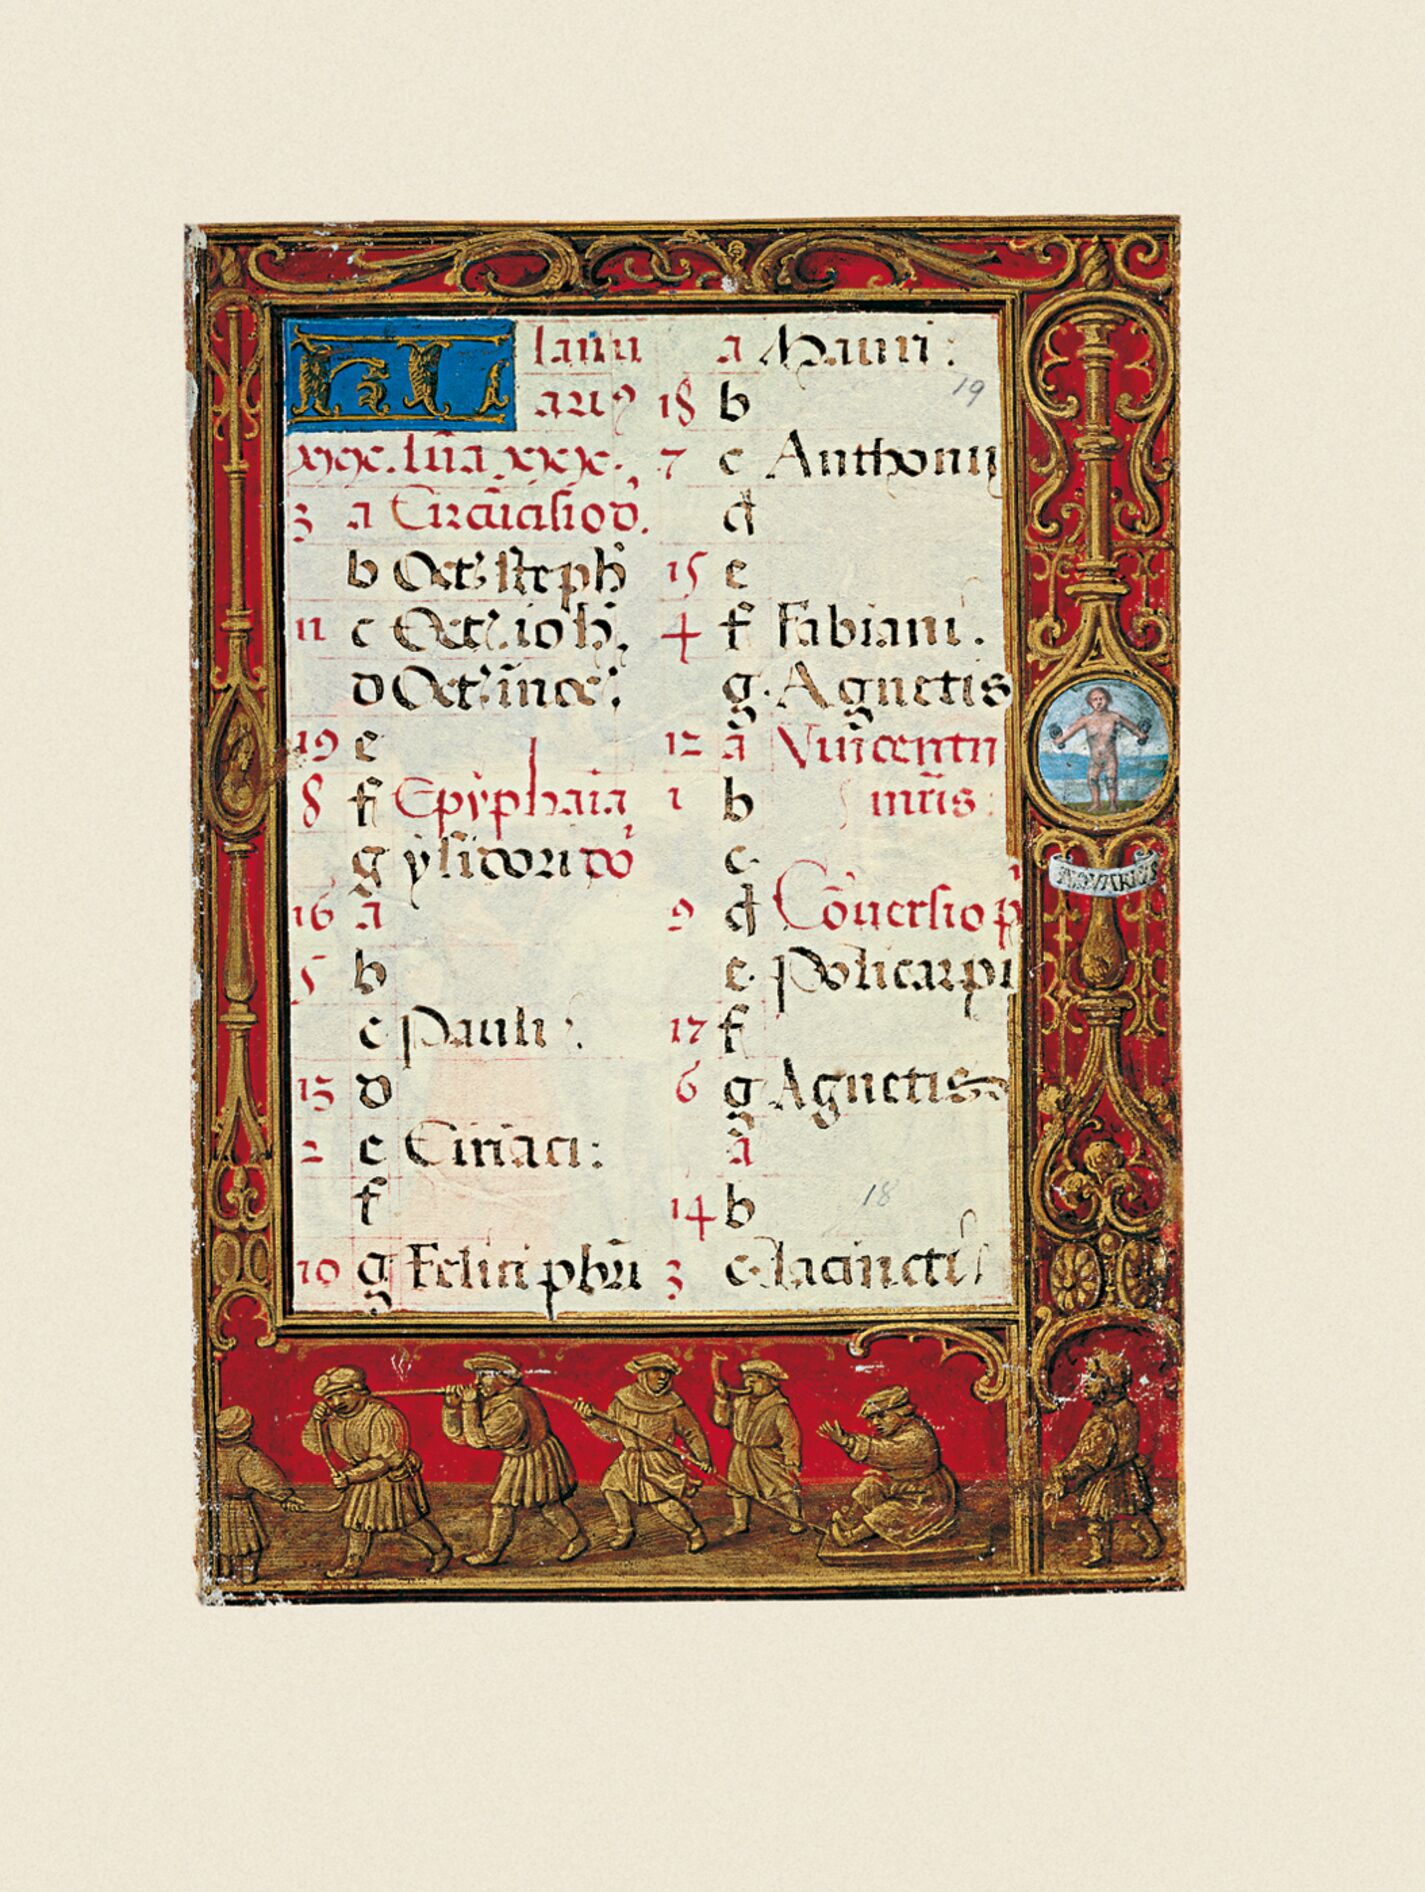 KL Ianu
ariꝰ
xxx. lũa xxx.
3 a Circũcisio d̃.
b Oct. steph̃
11 c Oct. ioh̃.
d Oct. ĩnoc.
19 e
8 f Epyphãia
g ysidori do
16 a
5 b
c Pauli:
13 d
2 e Ciriaci:
f
10 g Felici phr̃i
a Mauri:
19
18 b
7 c Anthonij
d
15 e
4 f Fabiani.
g. Agnetis
12 a Vincentii
1 b mr̃is:
c.
9 d Cõuersio p̃
e. Policarpi
17 f
6 g Agnetis
a
18
14 b
3 c. Iacincti
AQVARIVS